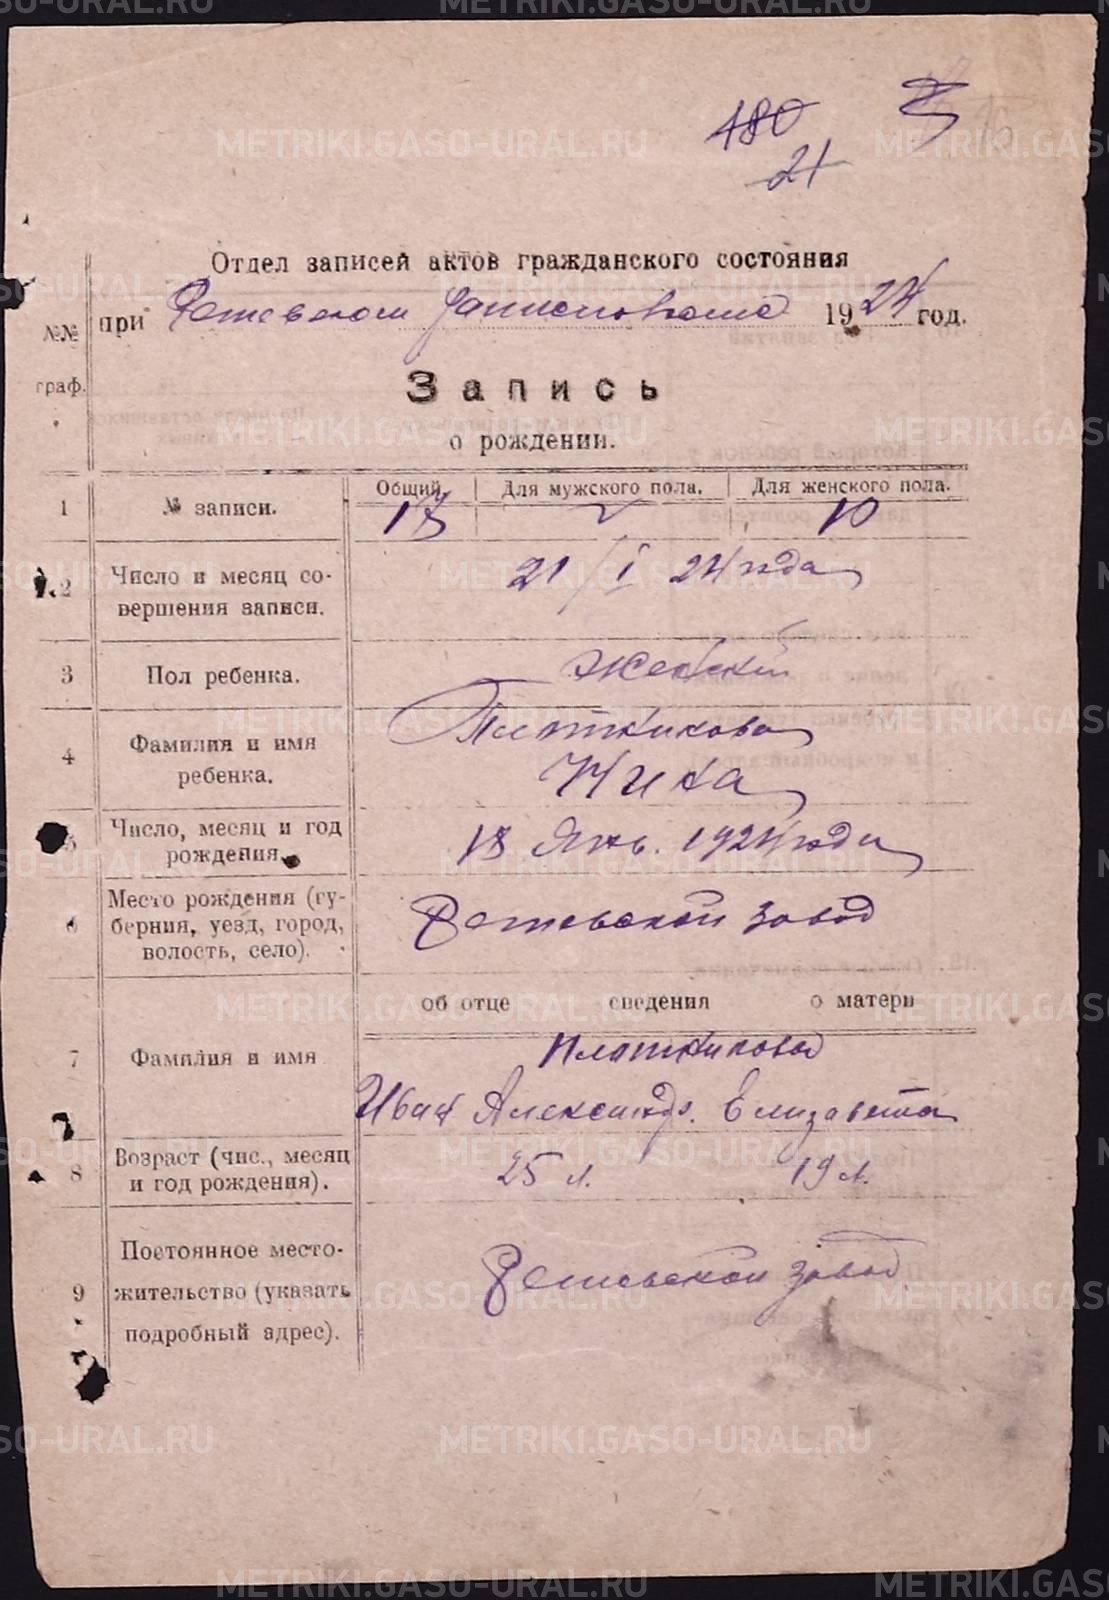 480
21
Отдел записей актов гражданского состояния
при Режевском 1924 год.
№№ граф.
Запись
о рождении.
Общий Для мужского пола. Для женского пола.
1 № записи. 13 10
2 Число и месяц со-
вершения записи.
21/I 24 года
3 Пол ребенка. Женский
4 Фамилия и имя
ребенка.
Плотникова
Нина
5 Число, месяц и год
рождения.
18 Янв. 1924 года
6 Место рождения (гу-
берния, уезд, город,
волость, село).
Режевской завод
об отце сведения о матери
7 Фамилия и имя
Плотниковы
Иван Александр. Елизавета
8 Возраст (чис., месяц
и год рождения).
25 л. 19 л.
9 Постоянное место-
жительство (указать
подробный адрес).
Режевской завод
METRIKI.GASO-URAL.RU